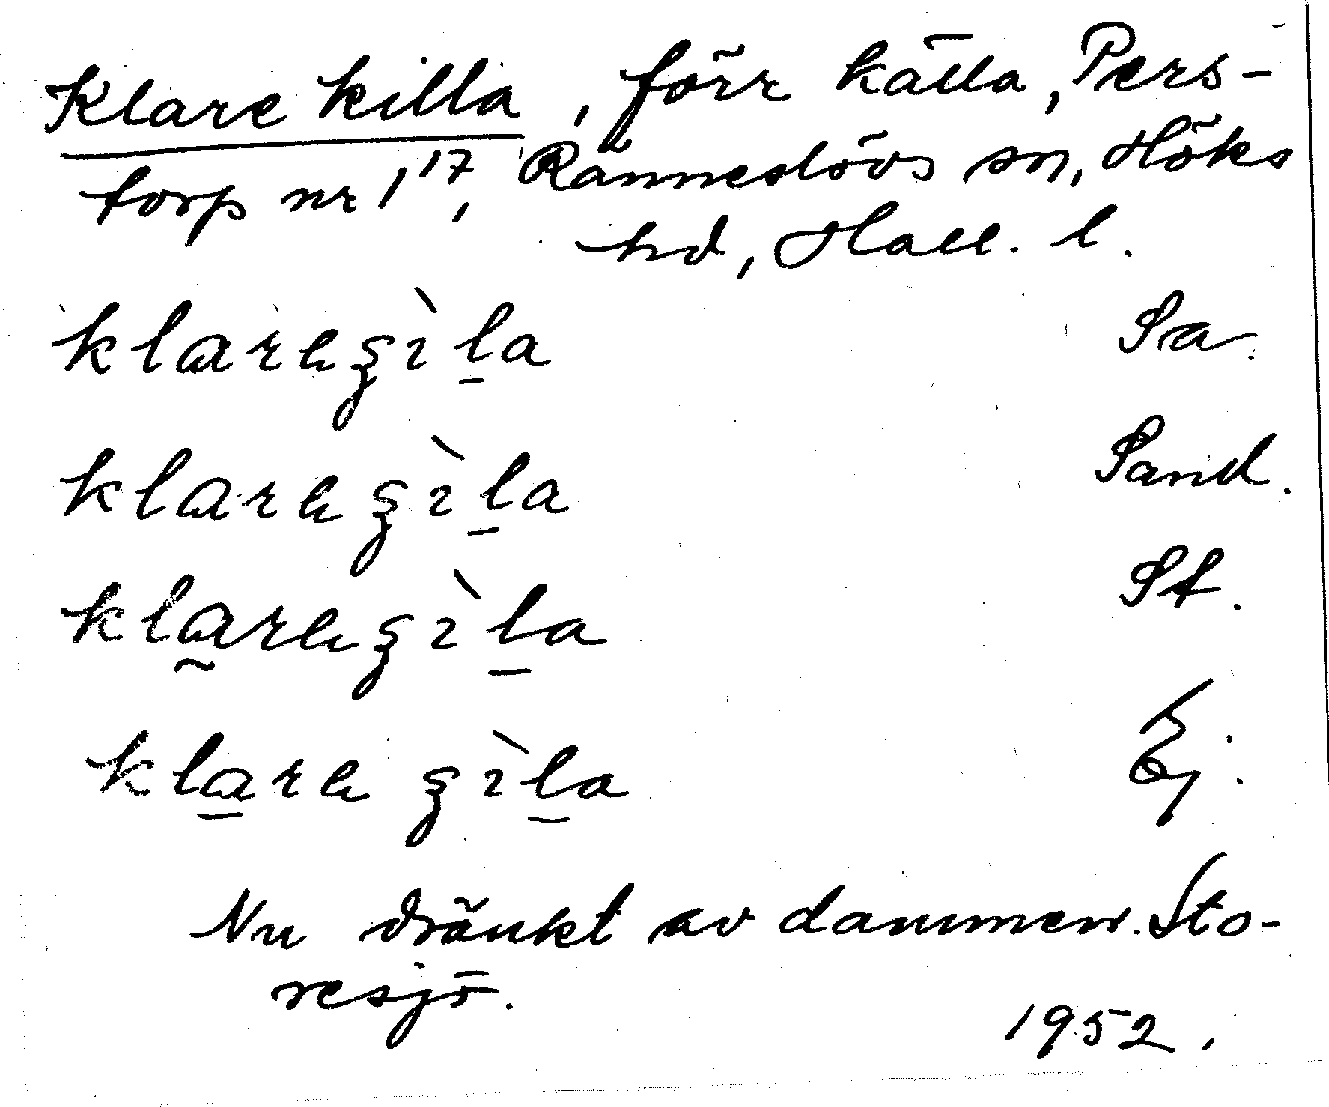 Klare killa, förr källa, Pers-
torp nr 1¹⁷, Ränneslövs sn, Höks
hd, Hall. l.
klareʒìl̠a Sa.
klareʒìl̠a Sand.
kla̰reʒìl̠a St.
kla̠re ʒìl̠a Ej.
Nu dränkt av dammen Sto-
resjö.
1952.